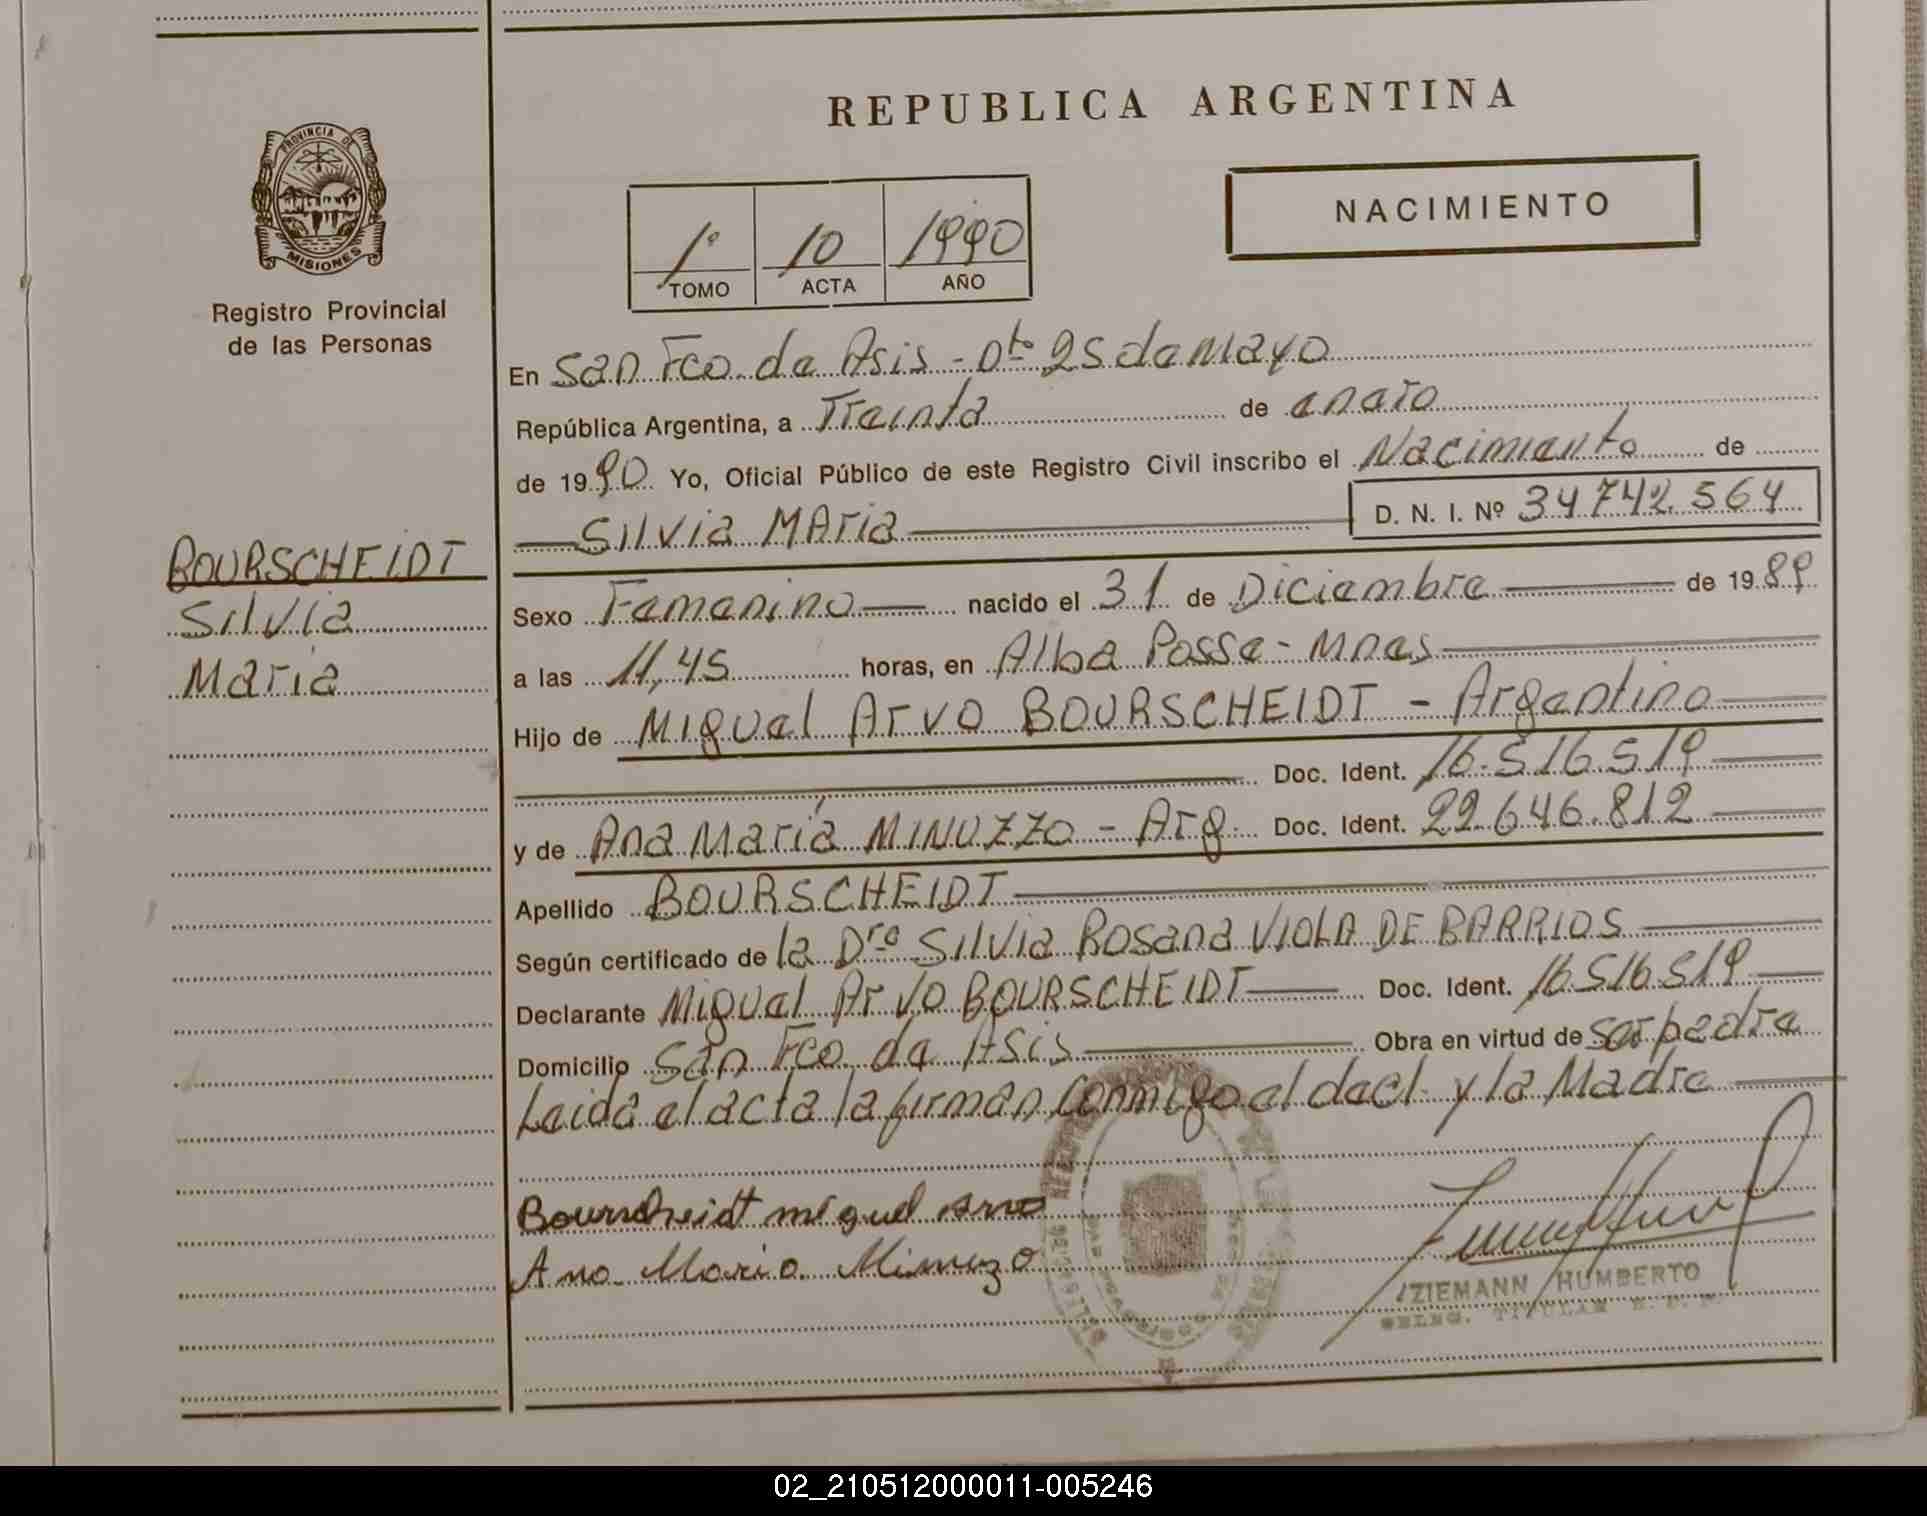 REPUBLICA ARGENTINA
NACIMIENTO
1º 10 1990
TOMO ACTA AÑO
PROVINCIA DE
MISIONES
Registro Provincial
de las Personas
BOURSCHEIDT
Silvia
Maria
En San Fco. de Asis - Dto 25 de Mayo
República Argentina, a Treinta de enero
de 1990 Yo, Oficial Público de este Registro Civil inscribo el Nacimiento de
Silvia MAria D. N. I. Nº 34742.564
Sexo Femenino nacido el 31 de Diciembre de 1989
a las 11,45 horas, en Alba Posse - Mnes
Hijo de Miguel Arvo BOURSCHEIDT - Argentino
Doc. Ident. 16.516.519
y de Ana María MINUZZO - Arg. Doc. Ident. 22.646.812
Apellido BOURSCHEIDT
Según certificado de la Dra Silvia Rosana VIOLA DE BARRIOS
Declarante Miguel Arvo BOURSCHEIDT Doc. Ident. 16.516.519
Domicilio San Fco. de Asis Obra en virtud de ser padre
Leida el acta la firman conmigo el decl. y la Madre
Bourscheidt miguel arno
Ana Maria Minuzo
ZIEMANN HUMBERTO
DELEG. TITULAR R. P. P.
02_210512000011-005246